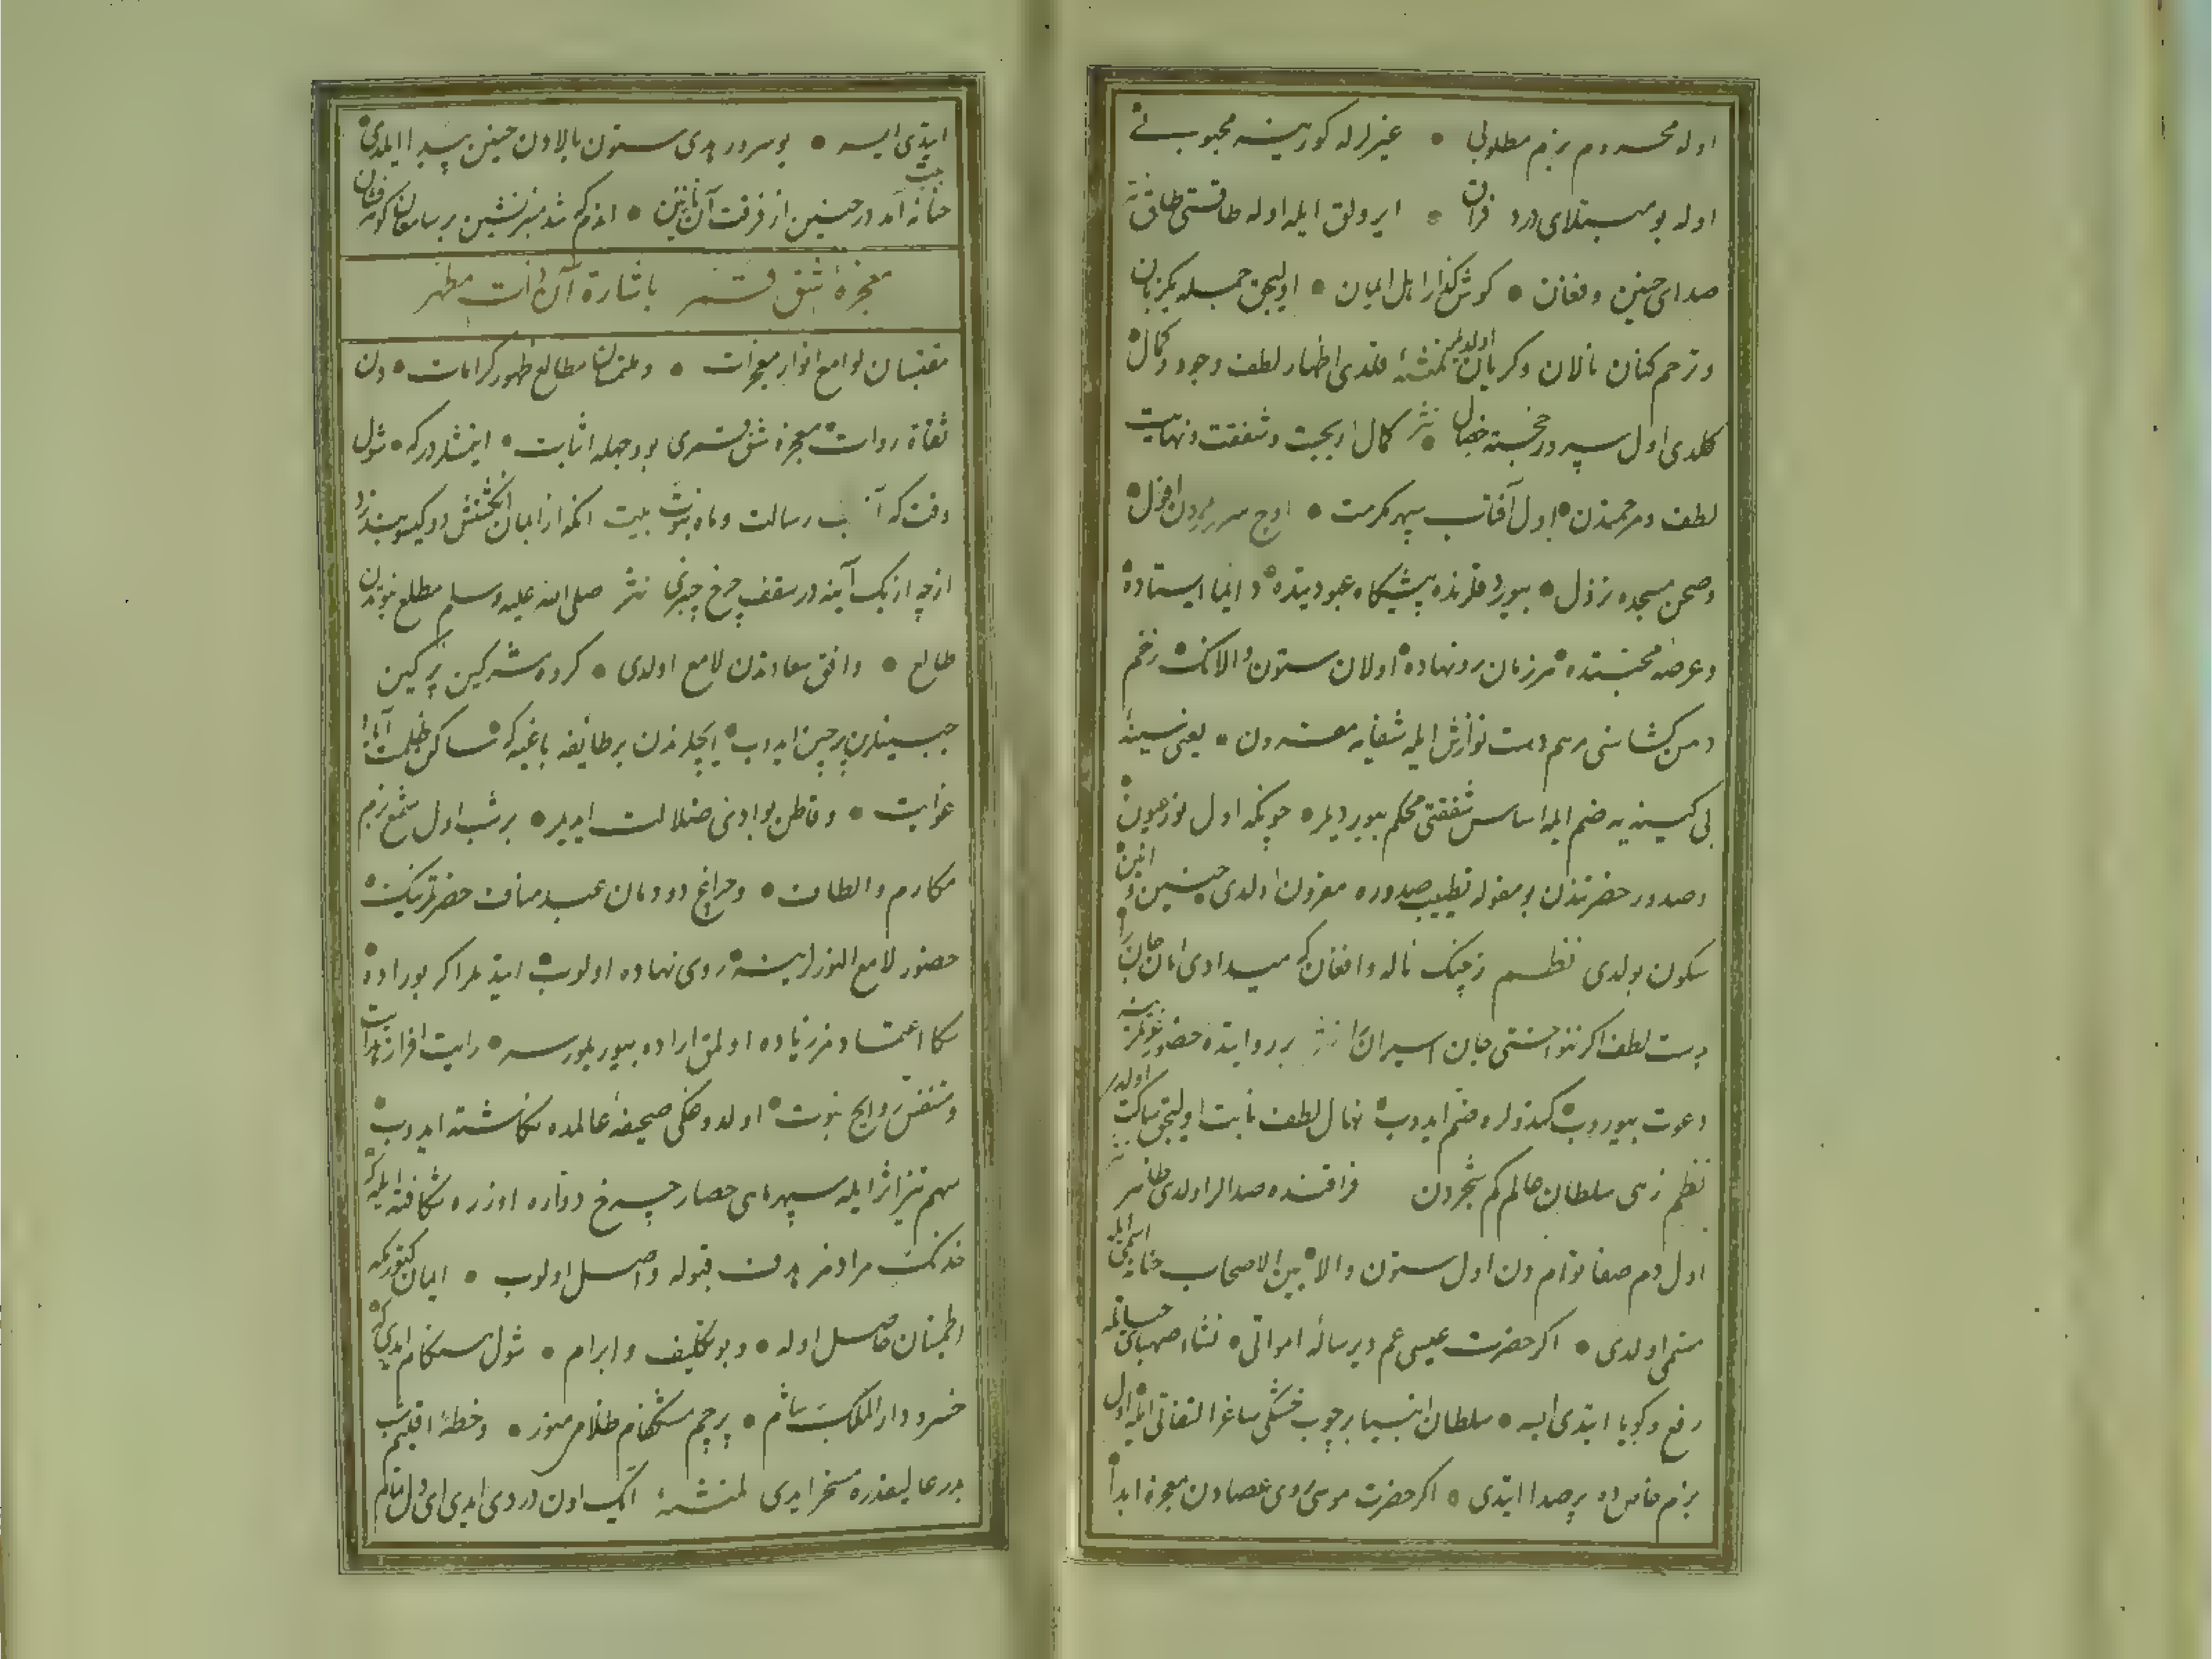 اوله محروم بزم مطلوبی • غیرلرله کورینه محبوبی
اوله بو مبتلای درد فراق • ایرولق ایله اوله طاقتی طاق نثر
صدای حنین و فغان • کوش کذار اهل ایمان • اولیجق جمله یکزبان
و ترحم کنان نالان و کریان اولدیلر لمنشئه قلدی اظهار لطف وجود و کمال
کلدی اول سرور خجسته خصال • نثر کمال و شفقت و نهایت
لطف و مرحمتدن اول آفتاب سپهر مکرمت • اوج افول
و صحن مسجده نزول • بیوردقلرنده پیشکاه عبودیتده دائما ایستاده
و عرضه محبتنده هرزمان رونهاده اولان ستون والانک زخم
دست نوازش ایله شفایه مقرون • یعنی سینهٔ
بی کینه یه ضم ایله اساس شفقتی محکم بیوردیلر • چونکه اول نور عیون
و صدور حضرتندن بو مقوله تطییب صدوره مقرون اولدی حنین و انین
سکون بولدی نظم ز چنک ناله و افغان که میدادی امان جان را
بدست لطف اکر ننواختی جان اسیران را نثر بر روایتده حضورلرینه
دعوت بیوروب کندولره ضم ایدوب نهال لطف نابت اولیجق ساکت اولدی
نظم زهی سلطان عالم کم شجردن فراقنده صدالر اولدی ظاهر نثر
اول دم صفا توأم دن اول ستون والا بین الاصحاب حنانه اسمی ایله
مسمی اولدی • اکر حضرت عیسی عم دیرسالهٔ امواتی • نشاء صهبای
رفع و کویا ایتدی ایسه • سلطان انبیا بر چوب خشکی ساغر التفاتی ایله اول
بزم خاص ده پر صدا ایتدی • اکر حضرت موسی روی عصادن معجزه ابدا
ایتدی ایسه • بو سرور هدی ستون بالادن حنین پیدا ایلدی
بیت حنانه آمد در حنین از فرقت آن نازنین • اندم که شد منبر نشین بر سامعان کوهر فشان
معجزهٔ شق قمر باشارة آن ذات مطهر
مقتبسان لوامع انوار معجزات • و ملتمسان مطالع ظهور کرامات • دن
ثقاة روات معجزهٔ شق قمری بو وجهله اثابت • ایتمشلردرکه • شول
وقت که آفتاب رسالت و ماه نبوت بیت
از چه از یک آینه در سقف چرخ چنبری نثر صلی الله علیه وسلم مطلع نبوتدن
طالع • و افق سعادتدن لامع اولدی • کروه مشرکین پر کین
جبینلرن پر چین ایدوب ایچلرندن بر طایفه باغیه که ساکن ظلمت آباد
غوایت • و قاطن بوادئ ضلالت ایدیلر • بر شب اول شمع بزم
مکارم و الطاف • و چراغ دودمان عبد مناف حضرتلرینک
حضور لامع النورلرینه روی نهاده اولوب ایتدیلر اکر بوراده
سکا اعتمادمز زیاده اولمق اراده بیوریلورسه • رایت افراز
و متنفس روایح نبوت اولدوغکی صحیفهٔ عالمده نکاشته ایدوب
سهم تیز اثر ایله سپهر مای حصار چرخ دواره اوزره شکافته ایله که
خدنک مرادمز هدف قبوله واصل اولوب • ایمان کتورمکه
اطمینان حاصل اوله • و بو تکلیف و ابرام • شول هنکام ایدی که
خسرو دار الملک شام • پرچم مشکفام ظلام هنوز • و خطهٔ اقلیم شب
بدر عالیقدره مسخر ایدی لمنشئه آیک اون دردی ایدی